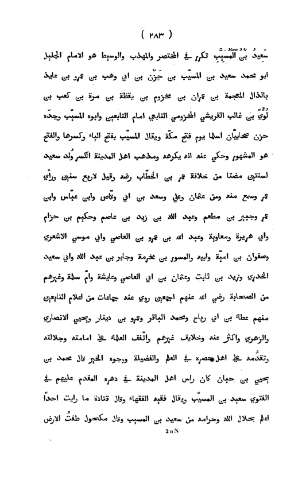 ( ٢٨٣ )
سعيد بن المسيب تكرر في المختصر والمهذب والوسيط هو الامام الجليل
ابو محمد سعيد بن المسيب بن حزن بن ابي وهب بن عمرو بن عايذ
بالذال المعجمة بن عمران بن مخزوم بن يقظة بن مرة بن كعب بن
لوي بن غالب القرشي المخزومي التابعي امام التابعين وابوه المسيب وجده
حزن صحابيان اسلما يوم فتح مكة ويقال المسيب بفتح الياء وكسرها والفتح
هو المشهور وحكي عنه انه يكرهه ومذهب اهل المدينة الكسر ولد سعيد
لسنتين مضتا من خلافة عمر بن الخطاب رضه وقيل لاربع سنين وراى
عمر وسمع منه ومن عثمان وعلي وسعد بن ابي وقاص وابن عباس وابن
عمر وجبير بن مطعم وعبد الله بن زيد بن عاصم وحكيم بن حزام
وابي هريرة ومعاوية وعبد الله بن عمرو بن العاصي وابي موسى الاشعري
وصفوان بن امية وابيه والمسور بن مخرمة وجابر بن عبد الله وابي سعيد
الخدري وزيد بن ثابت وعثمان بن ابي العاصي وعايشة وام سلمة وغيرهم
من الصحابة رضي الله عنهم اجمعين روى عنه جماعات من اعلام التابعين
منهم عطاء بن ابي رباح ومحمد الباقر وعمرو بن دينار ويحيى الانصاري
والزهري واكثر عنه وخلايق غيرهم واتفق العلماء على امامته وجلالته
وتقدمه على اهل عصره في العلم والفضيلة ووجوه الخير قال محمد بن
يحيى بن حبان كان راس اهل المدينة في دهره المقدم عليهم في
الفتوى سعيد بن المسيب ويقال فقيه الفقهاء وقال قتادة ما رايت احدا
اعلم بحلال الله وحرامه من سعيد بن المسيب وقال مكحول طفت الارض